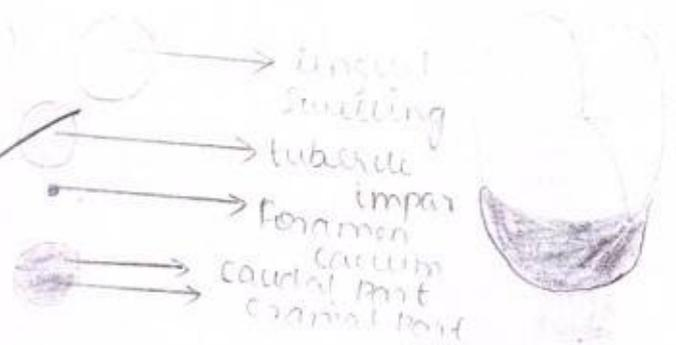 lingual
Swelling
tubercle
impar
Foramen
caecum
caudal part
cranial part